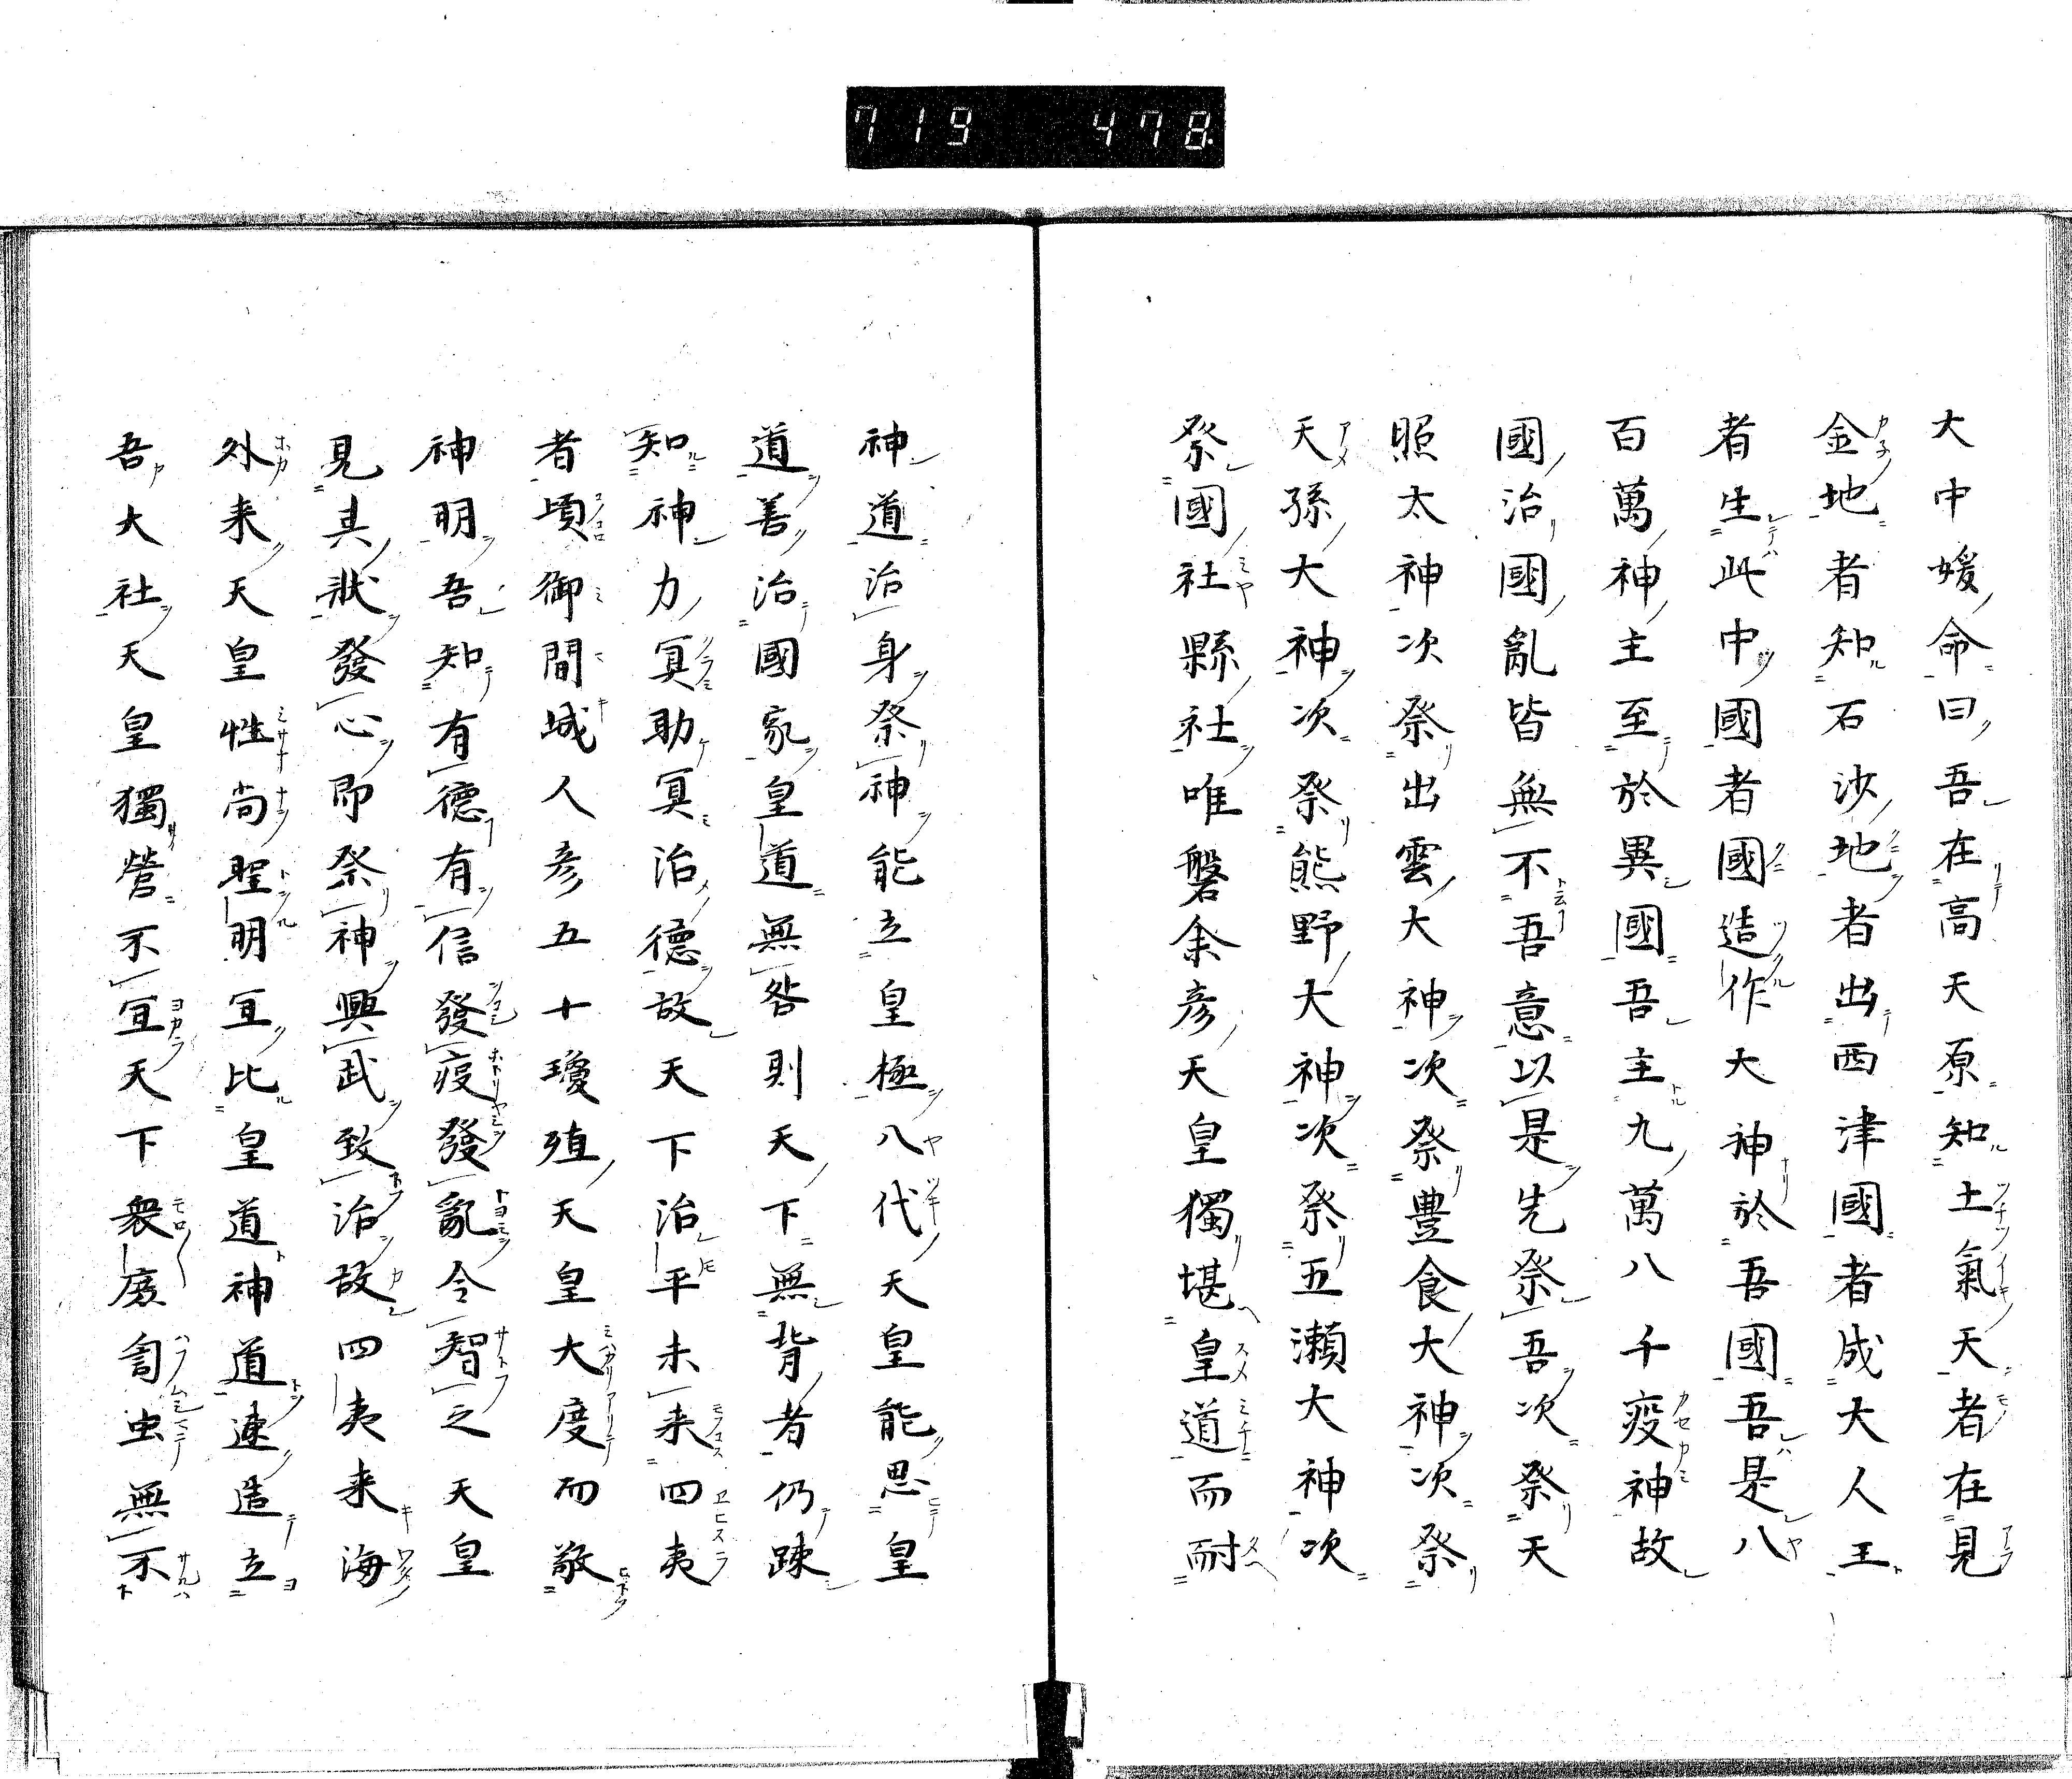 719 478
大中媛命曰吾在高天原知土氣天者在見
金地者知石沙地者出西津國者成大人王
者生此中國者國造作大神於吾國吾是八
百萬神主至於異國吾主九萬八千疫神故
國治國亂皆無不吾意以是先祭吾次祭天
照太神次祭出雲大神次祭豊食大神次祭
天孫大神次祭熊野大神次祭五瀬大神次
祭國社縣社唯磐余彦天皇獨堪皇道而耐
神道治身祭神能立皇極八代天皇能思皇
道善治國家皇道無咎則天下無背者仍踈
知神力冥助冥治德故天下治平未来四夷
者頃御間城人彦五十瓊殖天皇大度而敬
神明吾知有德有信發疫發亂令智之天皇
見其狀發心即祭神興武致治故四夷来海
外来天皇性尚聖明宜比皇道神道速造立
吾大社天皇獨營不宜天下衆庶匐虫無不